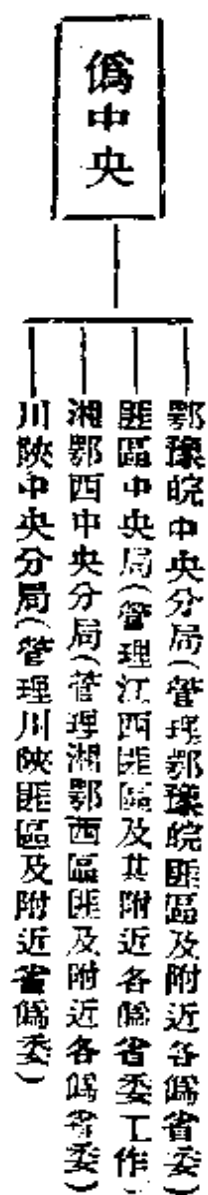 僞中央
鄂豫皖中央分局(管理鄂豫皖匪區及附近各僞省委)
匪區中央局(管理江西匪區及其附近各僞省委工作)
湘鄂西中央分局(管理湘鄂西區匪及附近各僞省委)
川陝中央分局(管理川陝匪區及附近省僞委)